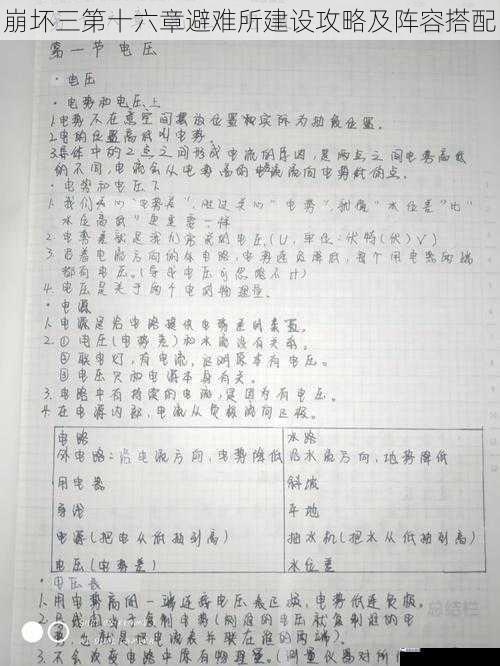 崩坏三第十六章避难所建设攻略及阵容搭配
第一节 电压
·电压
·电势和电压上
1.电势不在意空间摆放位置和实际为抽象位置。
2.电的位置高低叫电势。
3.导体中的2点之间形成电流的原因,是两点之间电势高低
的不同,电流会从电势高的 流向电势低的点。
·电势和电压下
1.我们关心"电势差",胜过关心"电势",就像"水位差"比"
水位高低"更重要一样
2.电势差就是我们所说的电压(U,单位:伏特(伏)V)
3.沿着电流方向的 电路,电势逐点降低,每个用电器两端
都有电压。(导线电压可忽略不计)
4.电压是关于两个电的物理量。
·电源
1.电源是给电路提供电势差的装置。
2.①电压(电势差)和水流没有关系。
②联电灯,有电流,证明原本有电压。
③电压只和电源本身有关。
3.电路中有持续的电流,是因为有电压。
4.在电源内部,电流从负极流向正极。
电路 水路
外电路:沿电流方向,电势降低 沿水流方向,地势降低
用电器 斜坡
导线 平地
电源(把电从低抽到高) 抽水机(把水从低抽到高)
电压(电势差) 水位差
·电压表
1.用电势高的一端连接电压表正极,电势低连负极。
总结栏
2. 复制电势(测谁的电压就复制谁的电
势,也就是把电流表并联在谁的两端)。
3.不会改变电路中原有物理量。(测量仪器对所